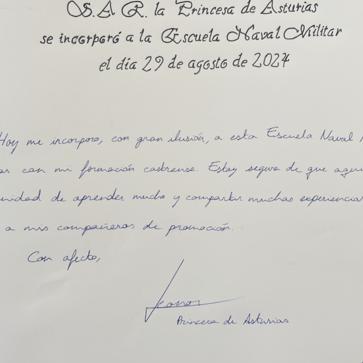 S.A.R. la Princesa de Asturias
se incorporó a la Escuela Naval Militar
el día 29 de agosto de 2024
Hoy me incorporo, con gran ilusión, a esta Escuela Naval
con mi formación castrense. Estoy segura de que
de aprender mucho y compartir muchas experiencias
a mis compañeros de promoción.
Con afecto,
Leonor
Princesa de Asturias